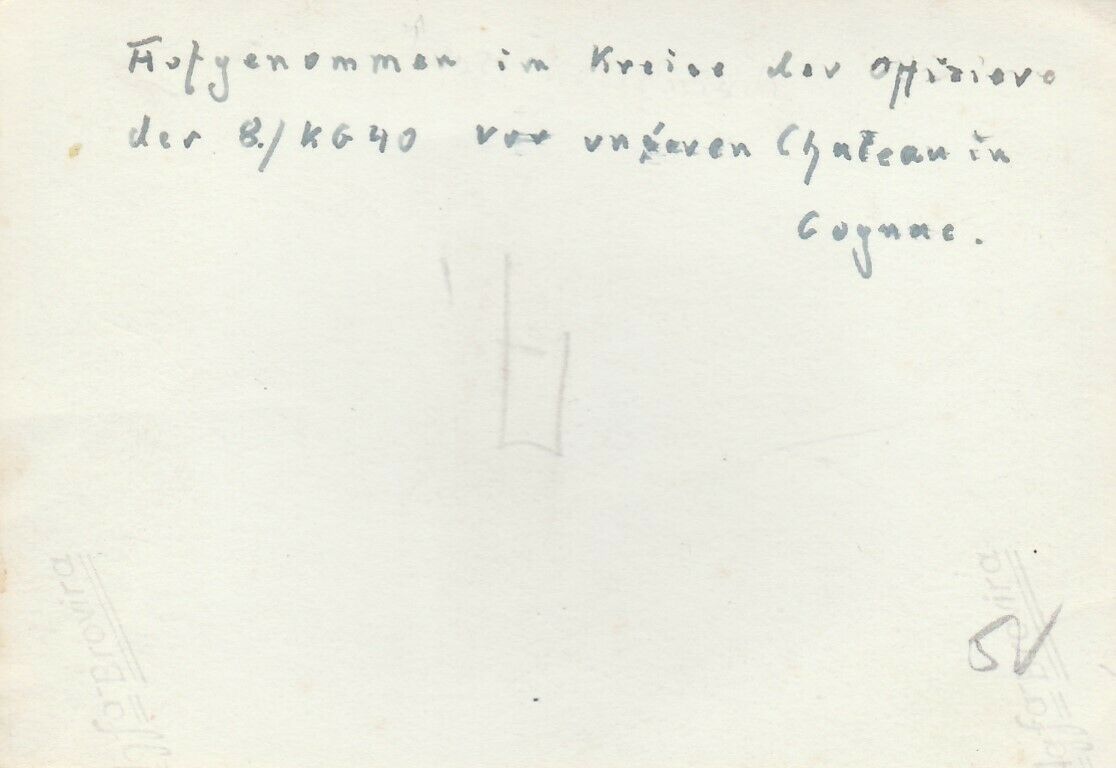 Aufgenommen im Kreise der Offiziere
der 8./KG40 vor unseren Chateau in
Cognac.
Agfa-Brovira
Agfa-Brovira